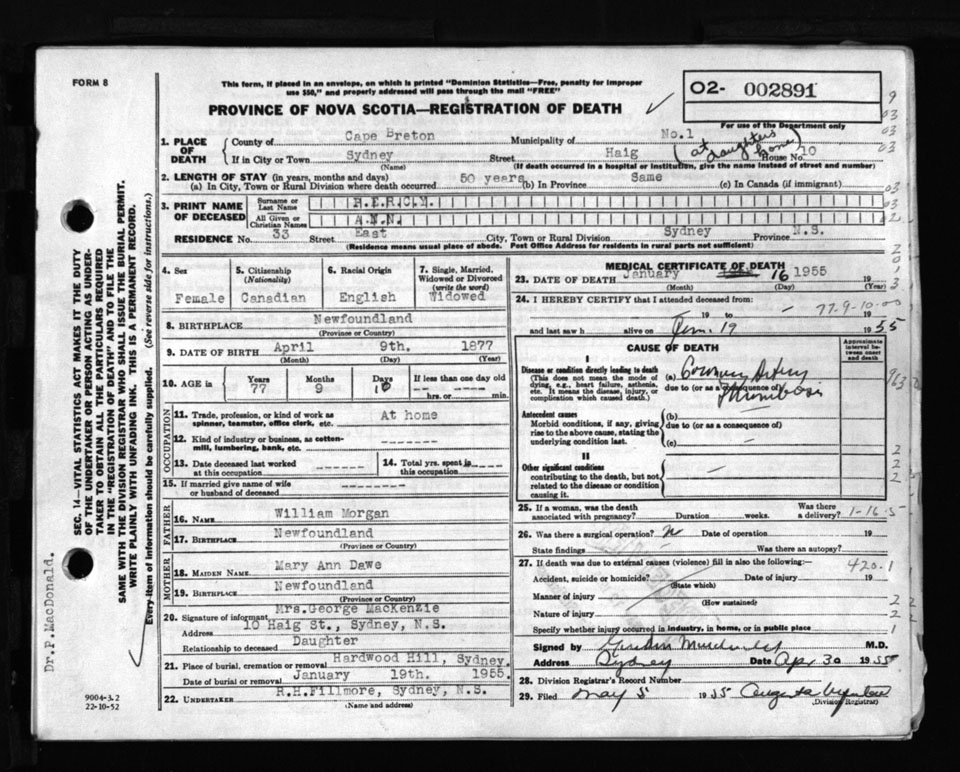 FORM 8
This form, if placed in an envelope, on which is printed "Dominion Statistics—Free, penalty for improper
use $50," and properly addressed will pass through the mail "FREE"
O2- 002891
PROVINCE OF NOVA SCOTIA—REGISTRATION OF DEATH
For use of the Department only
1. PLACE OF DEATH
County of Cape Breton Municipality of No.1
If in City or Town Sydney Street Haig House No. 10
(at daughters home)
(Name) (If death occurred in a hospital or institution, give the name instead of street and number)
2. LENGTH OF STAY (in years, months and days)
(a) In City, Town or Rural Division where death occurred 50 years (b) In Province Same (c) In Canada (if immigrant)
3. PRINT NAME OF DECEASED
Surname or Last Name
All Given or Christian Names A.N.N.
RESIDENCE No. 33 Street East City, Town or Rural Division Sydney Province N.S.
(Residence means usual place of abode. Post Office Address for residents in rural parts not sufficient)
4. Sex Female
5. Citizenship (Nationality) Canadian
6. Racial Origin English
7. Single, Married, Widowed or Divorced (write the word) Widowed
8. BIRTHPLACE Newfoundland
(Province or Country)
9. DATE OF BIRTH April 9th. 1877
(Month) (Day) (Year)
10. AGE in Years 77 Months 9 Days If less than one day old hrs. or min.
OCCUPATION
11. Trade, profession, or kind of work as spinner, teamster, office clerk, etc. At home
12. Kind of industry or business, as cotton-mill, lumbering, bank, etc. -------
13. Date deceased last worked at this occupation ------
14. Total yrs. spent in this occupation -----
15. If married give name of wife or husband of deceased
FATHER
16. NAME William Morgan
17. BIRTHPLACE Newfoundland
(Province or Country)
MOTHER
18. MAIDEN NAME Mary Ann Dawe
19. BIRTHPLACE Newfoundland
(Province or Country)
20. Signature of informant Mrs.George MacKenzie
Address 10 Haig St., Sydney, N.S.
Relationship to deceased Daughter
21. Place of burial, cremation or removal Hardwood Hill, Sydney.
Date of burial or removal January 19th. 1955.
22. UNDERTAKER R.H.Fillmore, Sydney, N.S.
(Name and address)
MEDICAL CERTIFICATE OF DEATH
23. DATE OF DEATH January 16 1955 19
(Month) (Day)
24. I HEREBY CERTIFY that I attended deceased from:
19 to 19
77-9-10-00
and last saw h alive on 19 1955
CAUSE OF DEATH
Approximate interval between onset and death
I
Disease or condition directly leading to death
(This does not mean the mode of dying, e.g., heart failure, asthenia, etc. It means the disease, injury, or complication which caused death.)
(a) Coronary Artery
due to (or as a consequence of)
Thrombosis
Antecedent causes
Morbid conditions, if any, giving rise to the above cause, stating the underlying condition last.
(b)
due to (or as a consequence of)
(c)
II
Other significant conditions
contributing to the death, but not related to the disease or condition causing it.
25. If a woman, was the death associated with pregnancy? Duration weeks. Was there a delivery? 1-16-5
26. Was there a surgical operation? Date of operation 19
State findings Was there an autopsy?
27. If death was due to external causes (violence) fill in also the following:— 420.1
Accident, suicide or homicide? Date of injury 19
(State which)
Manner of injury
(How sustained)
Nature of injury
Specify whether injury occurred in industry, in home, or in public place
Signed by M.D.
Address Sydney Date Apr 30 1955
28. Division Registrar's Record Number
29. Filed May 5 1955
(Division Registrar)
SEC. 14—VITAL STATISTICS ACT MAKES IT THE DUTY
OF THE UNDERTAKER OR PERSON ACTING AS UNDER-
TAKER TO OBTAIN ALL THE PARTICULARS REQUIRED
IN THE "REGISTRATION OF DEATH" AND TO FILE THE
SAME WITH THE DIVISION REGISTRAR WHO SHALL ISSUE THE BURIAL PERMIT.
WRITE PLAINLY WITH UNFADING INK. THIS IS A PERMANENT RECORD.
Every item of information should be carefully supplied. (See reverse side for instructions.)
Dr.P.MacDonald.
9004-3.2
22-10-52